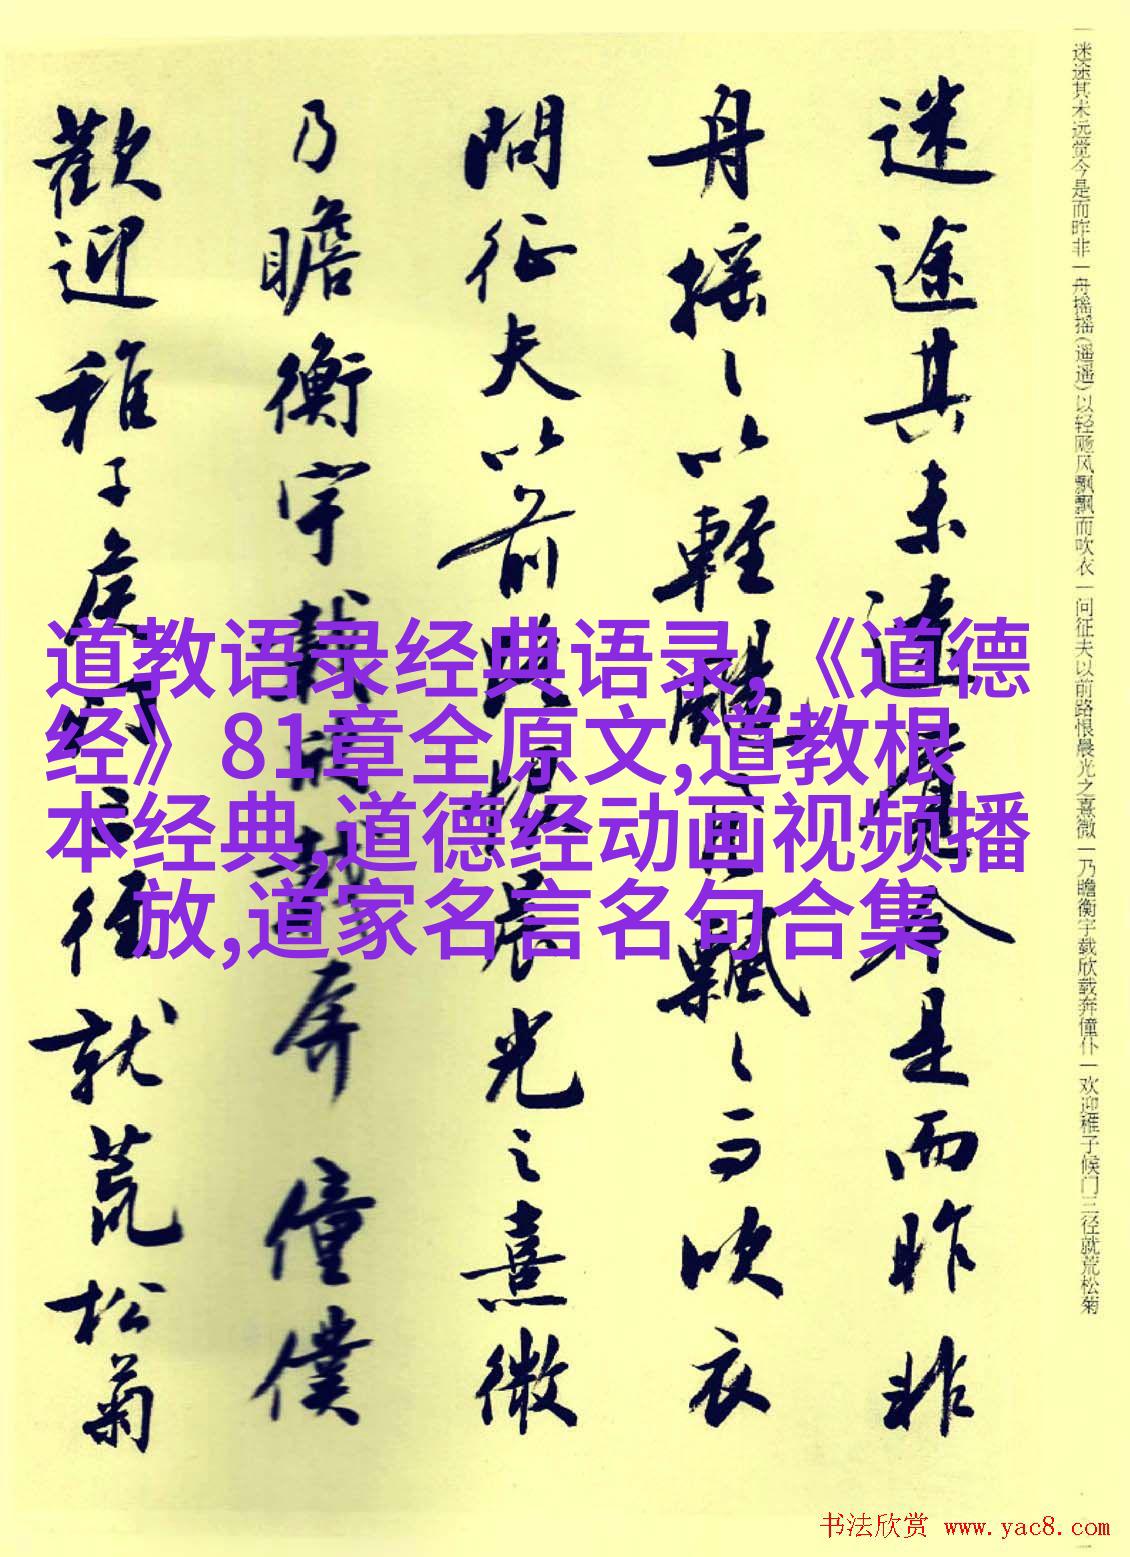 一迷途其未远觉今是而昨非一舟摇摇(遥遥)以轻飏风飘飘而吹衣一问征夫以前路恨晨光之熹微一乃瞻衡宇载欣载奔僮仆一欢迎稚子候门三径就荒松菊
迷途其未遠覺今是而昨非
舟摇〻以輕颺風飄〻而吹衣
問征夫以前路恨晨光之熹微
乃瞻衡宇載欣載奔僮僕
歡迎稚子候門三徑就荒松菊
道教语录经典语录,《道德
经》81章全原文,道教根
本经典,道德经动画视频播
放,道家名言名句合集
书法欣赏 www.yac8.com